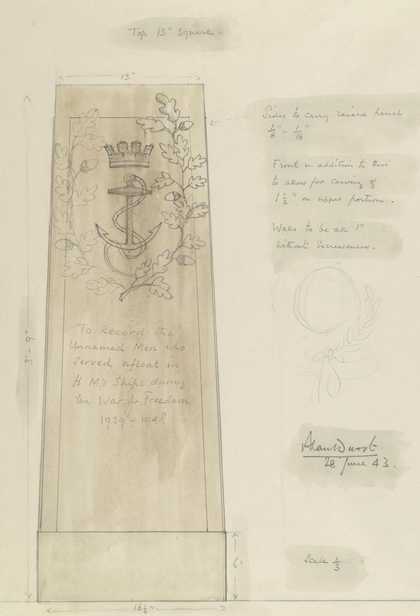 Top 13" Square.
13"
Sides to carry raised panel
Front in addition to this
to allow for carving of
1½" on upper portion.
Walls to be all 1"
without
To Record the
Unnamed Men who
Served afloat in
H M's Ships during
the War for Freedom
1939 -
Alan Durst
28 June 43.
6"
Scale ⅓
16½"